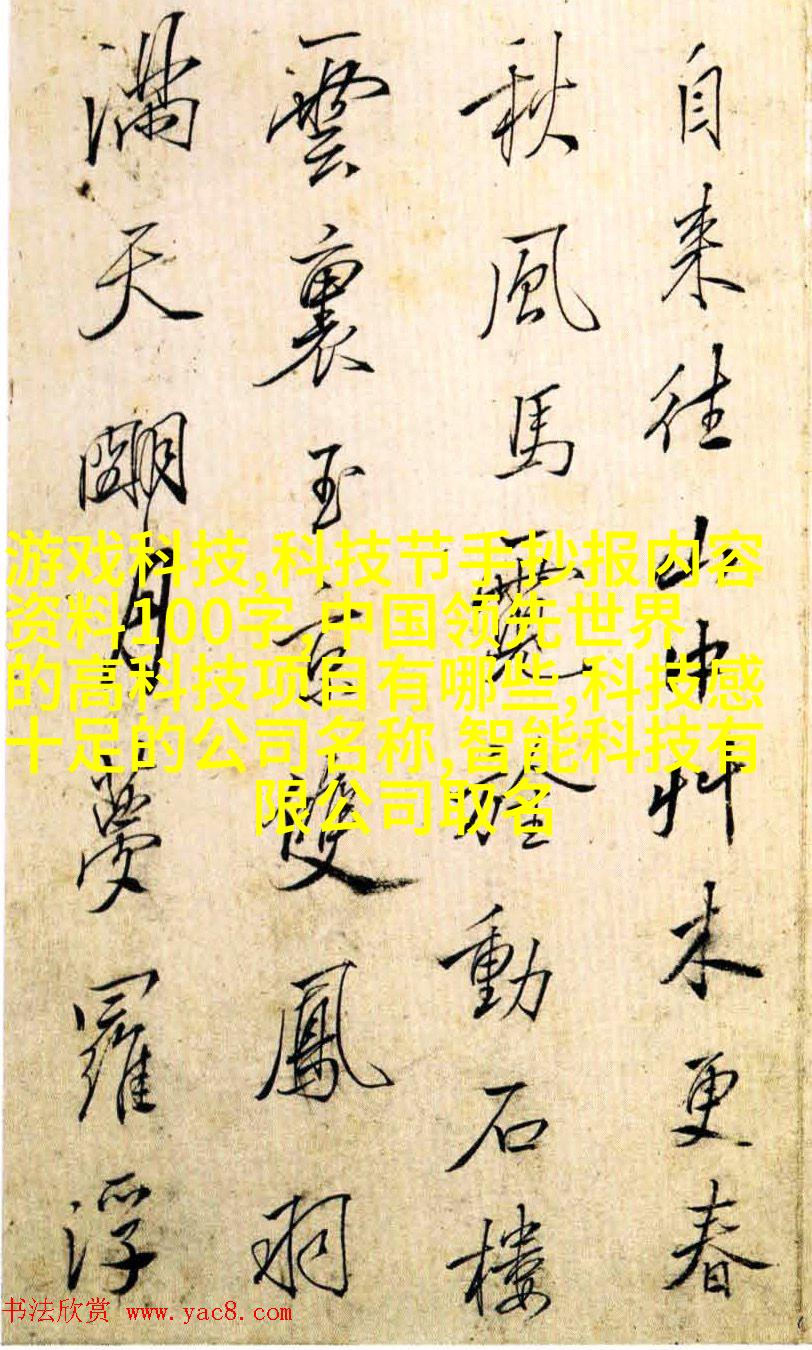 自来往山中艸木更春
秋風馬動石樓
雲裏玉京雙鳳
滿天明月夢羅浮
游戏科技,科技节手抄报内容
资料100字,中国领先世界
的高科技项目有哪些,科技感
十足的公司名称,智能科技有
限公司取名
书法欣赏 www.yac8.com